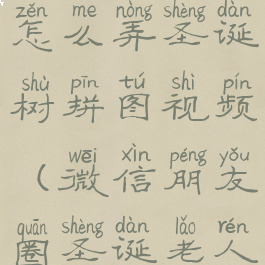 zěn me nòng shèng dàn
怎么弄圣诞
shù pīn tú shì pín
树拼图视频
wēi xìn péng yǒu
（微信朋友
quān shèng dàn lǎo rén
圈圣诞老人